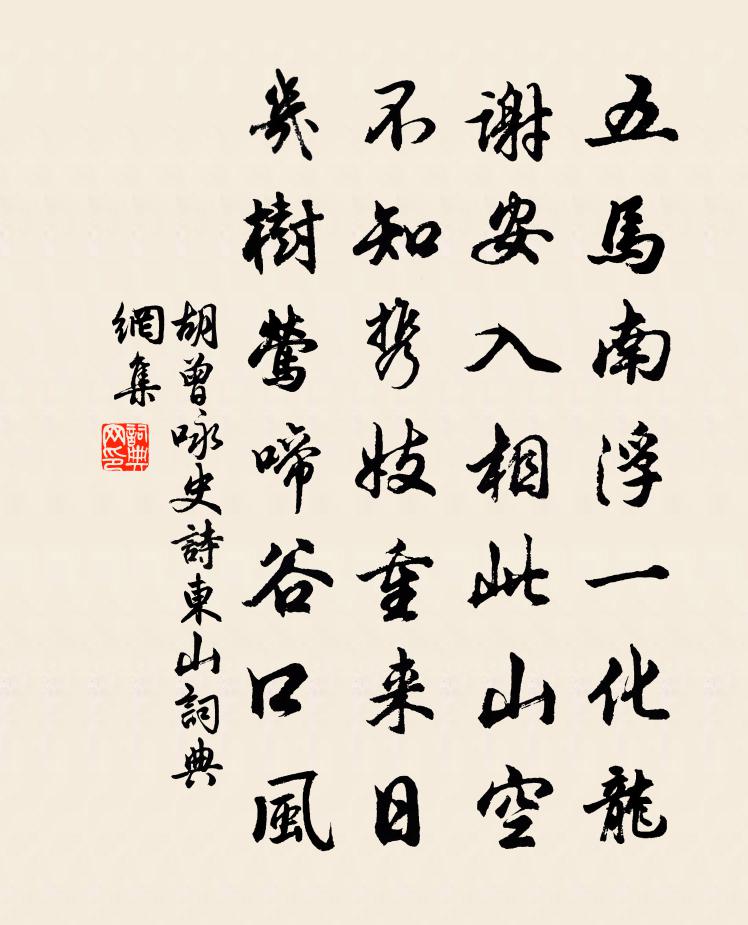 五馬南浮一化龍
謝安入相此山空
不知攜妓重来日
幾樹鶯啼谷口風
胡曾咏史詩東山詞典
網集
詞典
网印